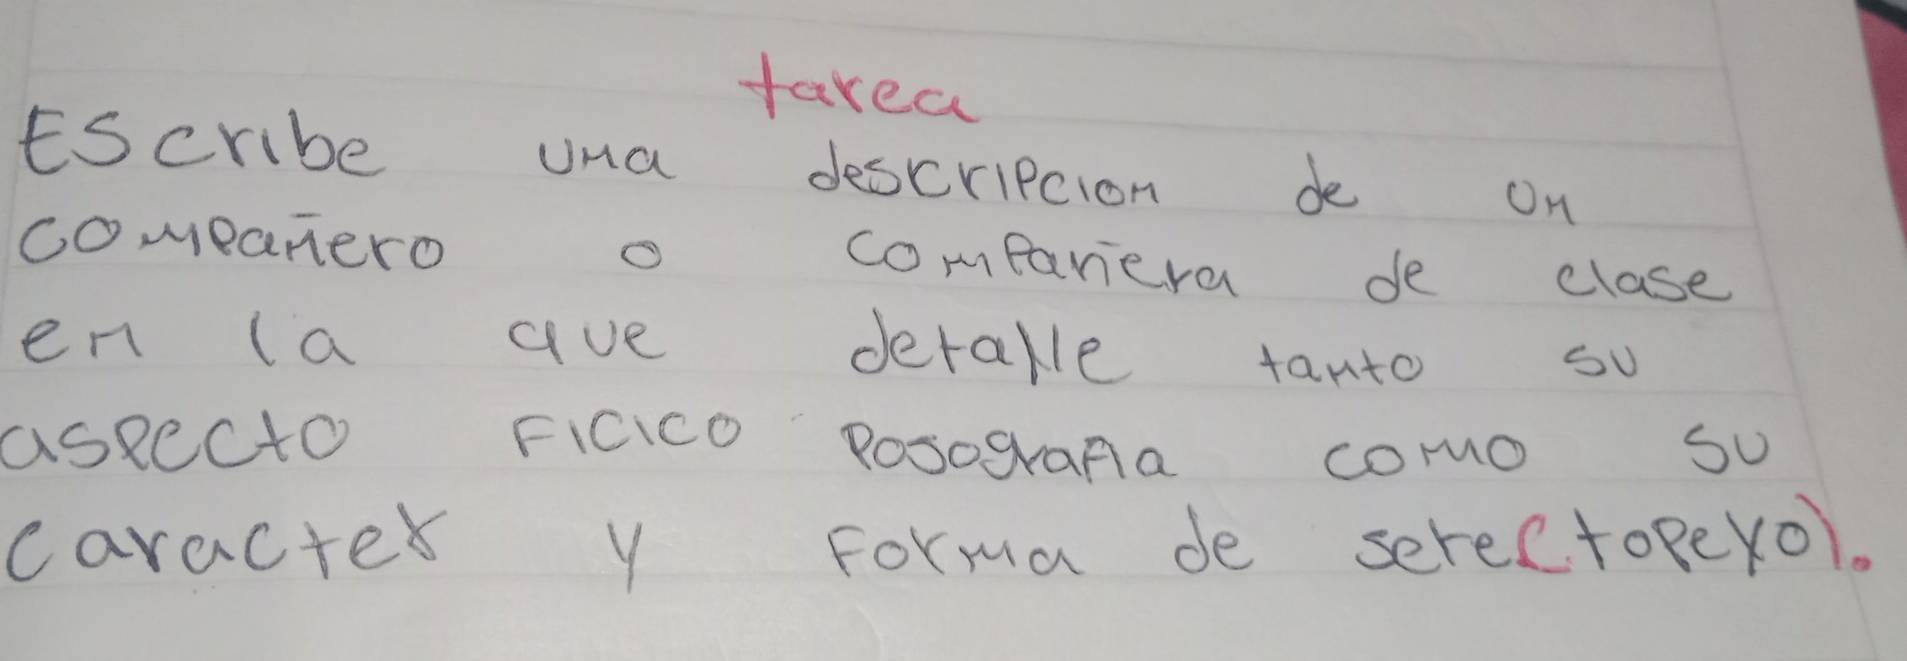 tarea
EScribe una descripcion de un
compañero o compañera de clase
en la que detalle tanto su
aspecto Ficico Posografia como su
caracter y Forma de sere(topeyo).